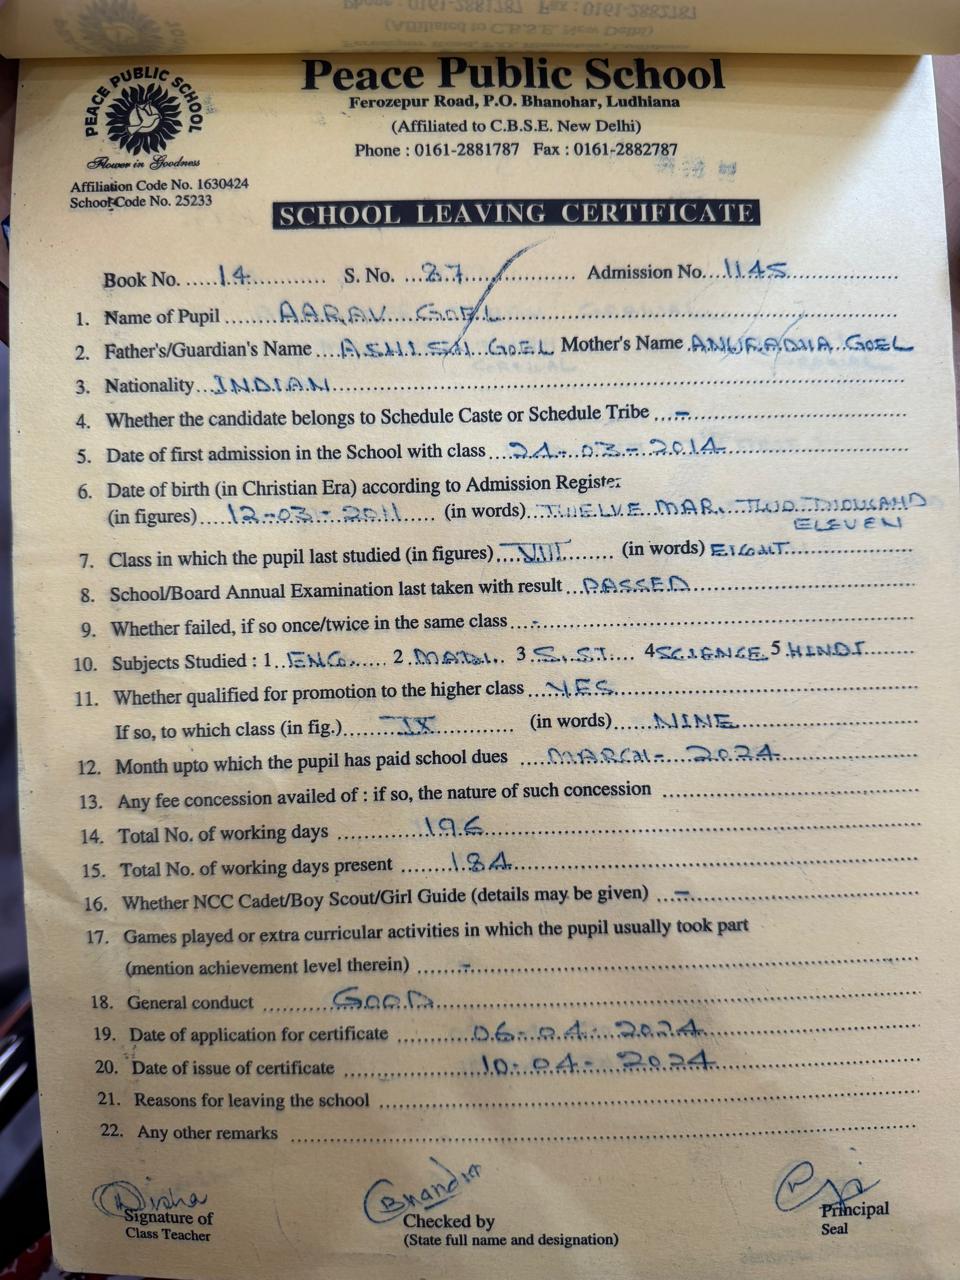 PEACE PUBLIC SCHOOL
Flower in Goodness
Affiliation Code No. 1630424
School Code No. 25233
Peace Public School
Ferozepur Road, P.O. Bhanohar, Ludhiana
(Affiliated to C.B.S.E. New Delhi)
Phone : 0161-2881787 Fax : 0161-2882787
SCHOOL LEAVING CERTIFICATE
Book No. 14 S. No. 37 Admission No. 1145
1. Name of Pupil AARAV GOEL
2. Father's/Guardian's Name ASHISH GOEL Mother's Name ANURADHA GOEL
3. Nationality INDIAN
4. Whether the candidate belongs to Schedule Caste or Schedule Tribe –
5. Date of first admission in the School with class 24-03-2014
6. Date of birth (in Christian Era) according to Admission Register
(in figures) 12-03-2011 (in words) TWELVE MAR. TWO THOUSAND
ELEVEN
7. Class in which the pupil last studied (in figures) VIII (in words) EIGHT
8. School/Board Annual Examination last taken with result PASSED
9. Whether failed, if so once/twice in the same class -
10. Subjects Studied : 1 ENG. 2 MATH. 3 S.ST. 4 SCIENCE 5 HINDI
11. Whether qualified for promotion to the higher class YES
If so, to which class (in fig.) IX (in words) NINE
12. Month upto which the pupil has paid school dues MARCH - 2024
13. Any fee concession availed of : if so, the nature of such concession
14. Total No. of working days 196
15. Total No. of working days present 184
16. Whether NCC Cadet/Boy Scout/Girl Guide (details may be given) –
17. Games played or extra curricular activities in which the pupil usually took part
(mention achievement level therein) -
18. General conduct GOOD
19. Date of application for certificate 06-04-2024
20. Date of issue of certificate 10-04-2024
21. Reasons for leaving the school
22. Any other remarks
Disha
Signature of
Class Teacher
Checked by
(State full name and designation)
Principal
Seal